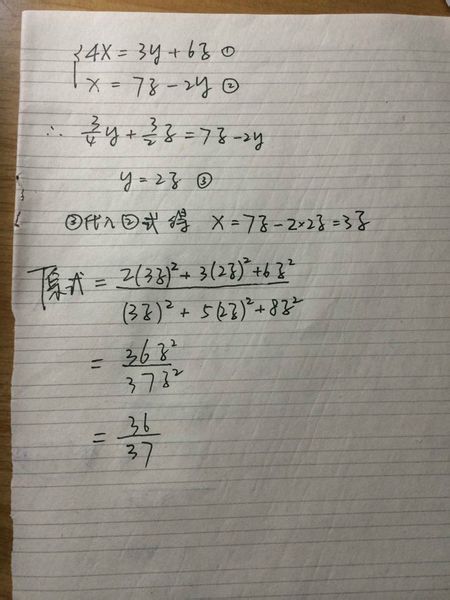 {4x = 3y + 6z ①
x = 7z - 2y ②
∴ 3/4 y + 3/2 z = 7z - 2y
y = 2z ③
③代入②式得 x = 7z - 2×2z = 3z
原式 = 2(3z)² + 3(2z)² + 6z² / (3z)² + 5(2z)² + 8z²
= 36z² / 37z²
= 36 / 37